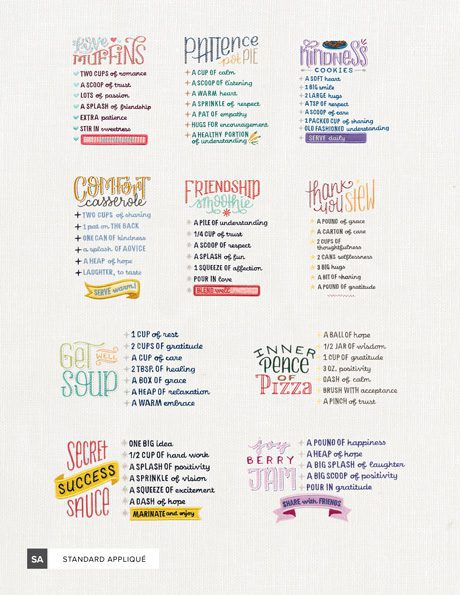 Love
MUFFINS
TWO CUPS of romance
A SCOOP of trust
LOTS of passion
A SPLASH of friendship
EXTRA patience
STIR IN sweetness
PATIENCE
pot PIE
A CUP of calm
A SCOOP of listening
A WARM heart
A SPRINKLE of respect
A PAT of empathy
HUGS FOR encouragement
A HEALTHY PORTION
of understanding
KINDNESS
COOKIES
A SOFT heart
1 BIG smile
2 LARGE hugs
A TSP of respect
A SCOOP of care
1 PACKED CUP of sharing
OLD FASHIONED understanding
SERVE daily
COMFORT
casserole
TWO CUPS of sharing
1 pat on THE BACK
ONE CAN of kindness
a splash of ADVICE
A HEAP of hope
LAUGHTER, to taste
SERVE warm!
FRIENDSHIP
smoothie
A PILE of understanding
1/4 CUP of trust
A SCOOP of respect
A SPLASH of fun
1 SQUEEZE of affection
POUR IN love
BLEND well
thank
you STEW
A POUND of grace
A CARTON of care
2 CUPS of
thoughtfulness
2 CANS selflessness
3 BIG hugs
A BIT of sharing
A POUND of gratitude
GET WELL
SOUP
1 CUP of rest
2 CUPS of gratitude
A CUP of care
2 TBSP. of healing
A BOX of grace
A HEAP of relaxation
A WARM embrace
INNER
PEACE
OF
PIZZA
A BALL of hope
1/2 JAR of wisdom
1 CUP of gratitude
3 OZ. positivity
DASH of calm
BRUSH WITH acceptance
A PINCH of trust
SECRET
SUCCESS
SAUCE
ONE BIG idea
1/2 CUP of hard work
A SPLASH of positivity
A SPRINKLE of vision
A SQUEEZE of excitement
A DASH of hope
MARINATE and enjoy
joy
BERRY
JAM
A POUND of happiness
A HEAP of hope
A BIG SPLASH of laughter
A BIG SCOOP of positivity
POUR IN gratitude
SHARE with FRIENDS
SA
STANDARD APPLIQUÉ